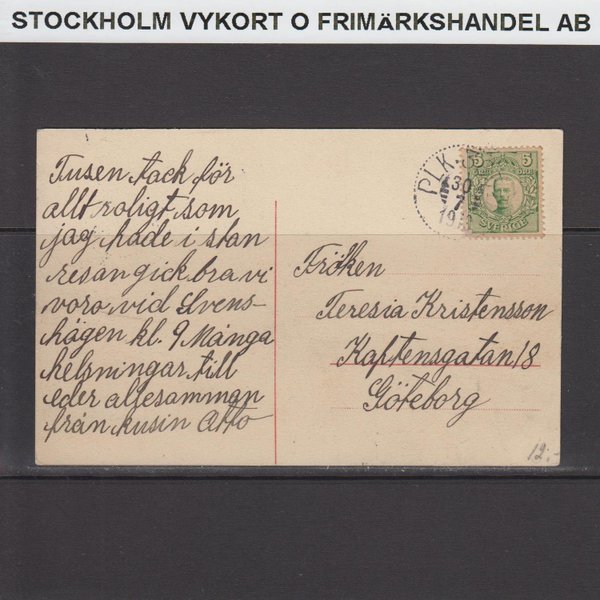 STOCKHOLM VYKORT O FRIMÄRKSHANDEL AB
Tusen tack för
allt roligt som
jag hade i stan
resan gick bra vi
voro vid Svens-
hågen kl. 9 Många
helsningar till
eder allesamman
från kusin Otto
PLK
30
5 5
SVERIGE
Fröken
Teresia Kristensson
Kaptensgatan 18
Göteborg
12:-